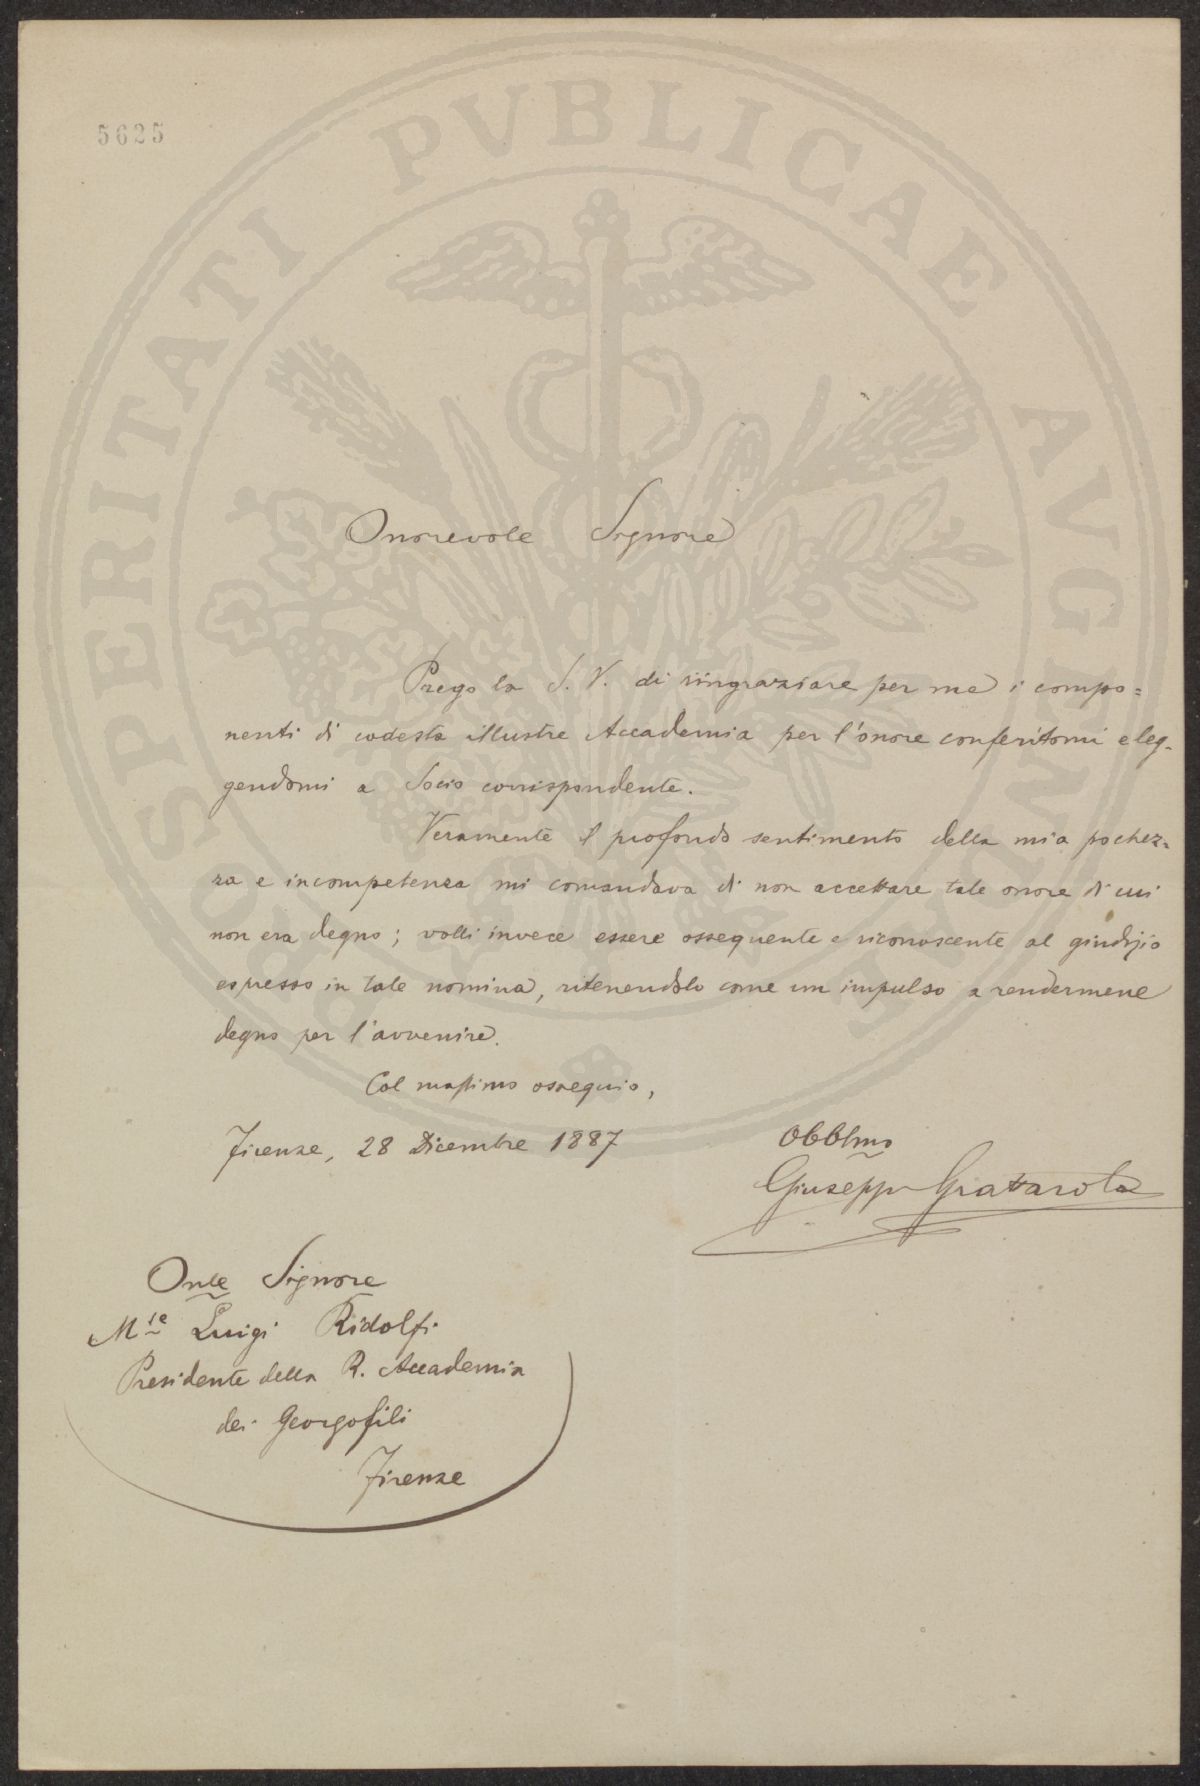 5625
PROSPERITATI PVBLICAE AVGENDAE
Onorevole Signore
Prego la S. V. di ringraziare per me i compo=
nenti di codesta illustre Accademia per l'onore conferitomi eleg=
gendomi a Socio corrispondente.
Veramente il profondo sentimento della mia pochez=
za e incompetenza mi comandava di non accettare tale onore di cui
non era degno; volli invece essere ossequente e riconoscente al giudizio
espresso in tale nomina, ritenendolo come un impulso a rendermene
degno per l'avvenire.
Col massimo ossequio,
Firenze, 28 Dicembre 1887
Obblmo
Giuseppe Grattarola
Onle Signore
Mse Luigi Ridolfi
Presidente della R. Accademia
dei Georgofili
Firenze